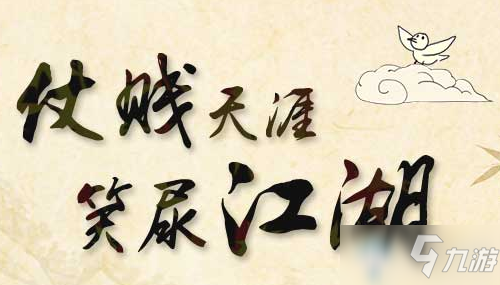 仗贱天涯
笑尿江湖
九游